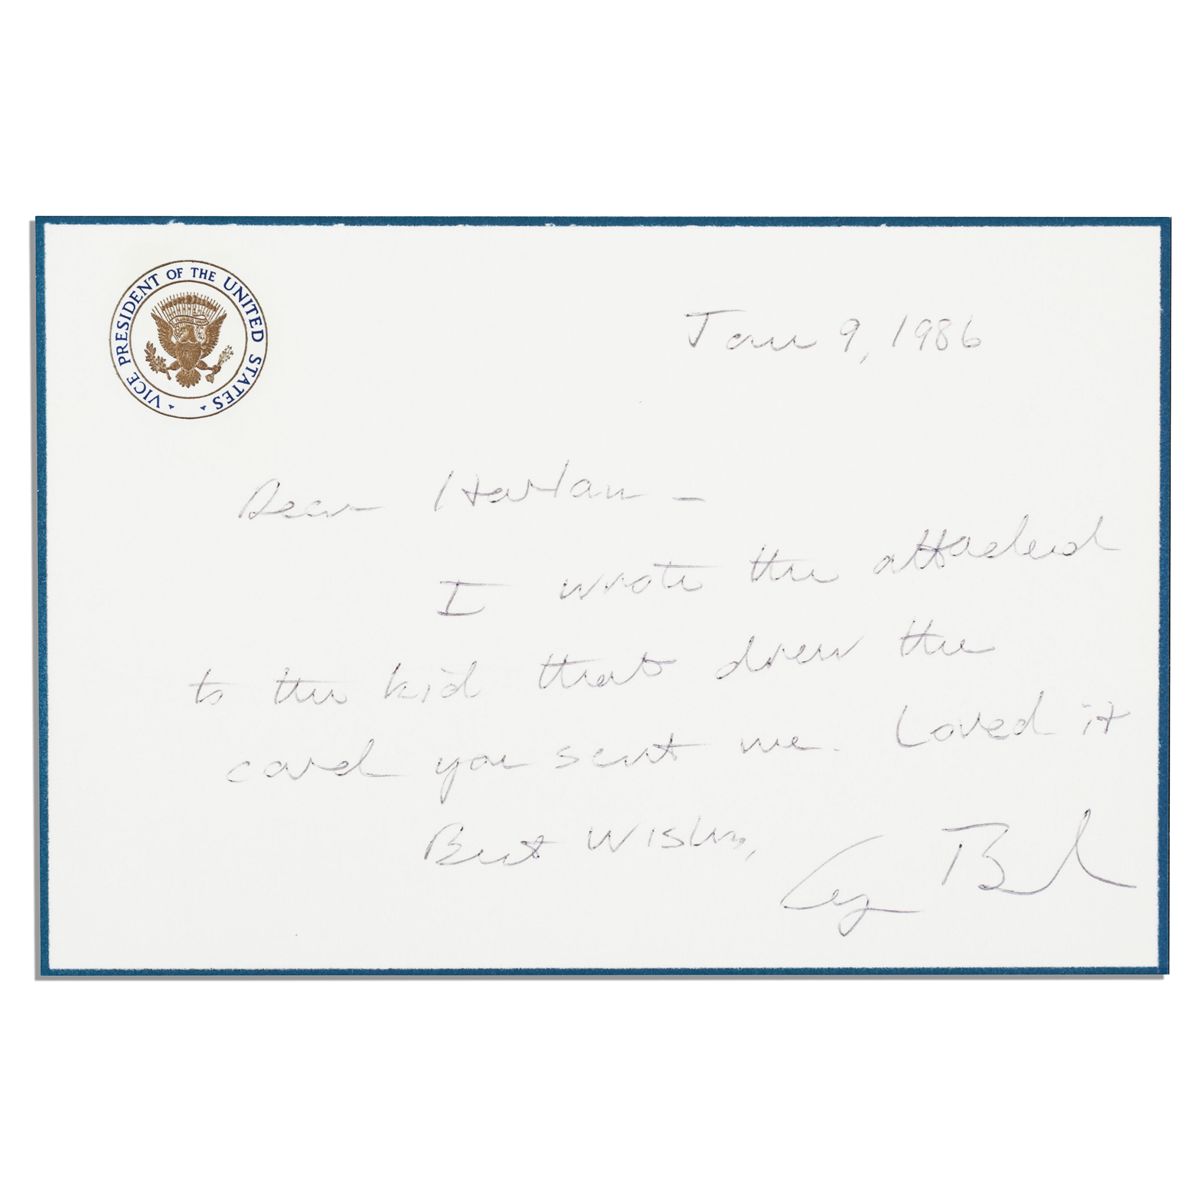 VICE PRESIDENT OF THE UNITED STATES
Jan 9, 1986
Dear Harlan -
I wrote the attached
to the kid that drew the
card you sent me. Loved it
Best Wishes,
George Bush